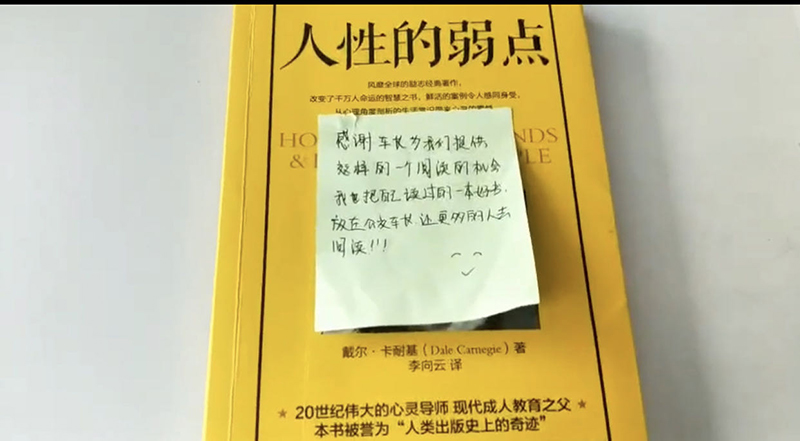 人性的弱点
风靡全球的励志经典著作,
改变了千万人命运的智慧之书,鲜活的案例令人感同身受,
HO NDS
& PLE
感谢车长为我们提供
这样的一个阅读的机会
我也把自己读过的一本好书.
放在公交车长 还更多的人去
阅读!!!
戴尔·卡耐基(Dale Carnegie)著
李向云 译
★ 20世纪伟大的心灵导师 现代成人教育之父 ★
本书被誉为“人类出版史上的奇迹”